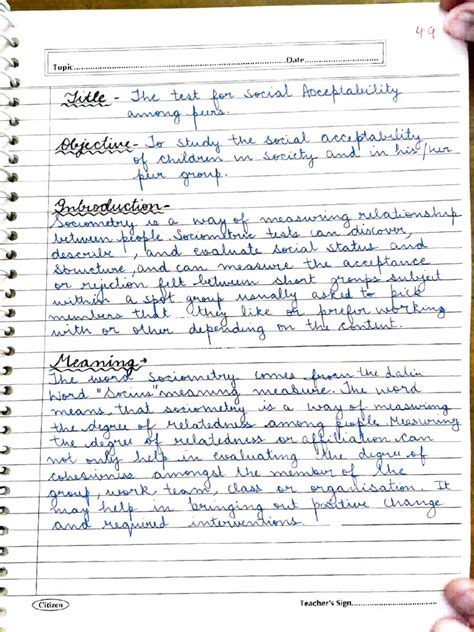 49
Topic.................... Date....................
Title - The test for Social Acceptability
among peers.
Objective - To study the social acceptability
of children in society and in his/her
peer group.
Introduction -
Sociometry is a way of measuring relationship
between people. Sociometric tests can discover,
describe, and evaluate social status and
structure, and can measure the acceptance
or rejection felt between short groups subject
within a spot group usually asked to pick
members that they like or prefer working
with or other depending on the content.
Meaning →
The word Sociometry comes from the Latin
Word "Socius" meaning measure. The word
means, that sociometry is a way of measuring
the degree of relatedness among people. Measuring
the degree of relatedness or affiliation can
not only help in evaluating the degree of
cohesiveness amongst the member of the
group, work, team, class or organisation. It
may help in bringing out positive change
and required interventions.
Citizen
Teacher's Sign....................